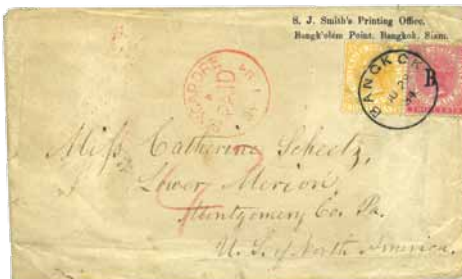 S. J. Smith's Printing Office.
Bangk'olem Point. Bangkok. Siam.
BANGKOK
B
SINGAPORE
PAID
Miss Catherine Scheetz,
Lower Merion,
Montgomery Co. Pa.
U. S. of North America.